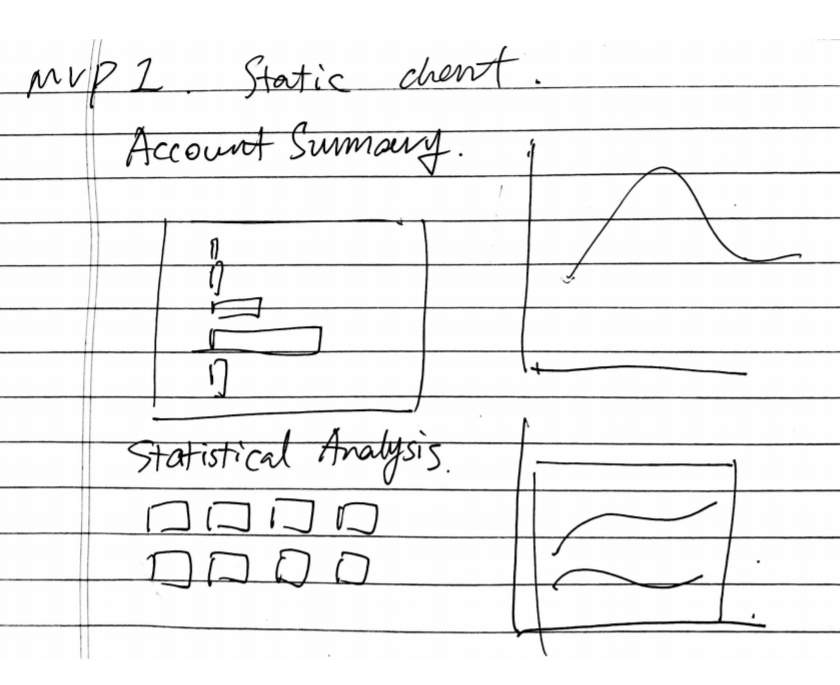 MVP 1. Static client.
Account Summary.
Statistical Analysis.